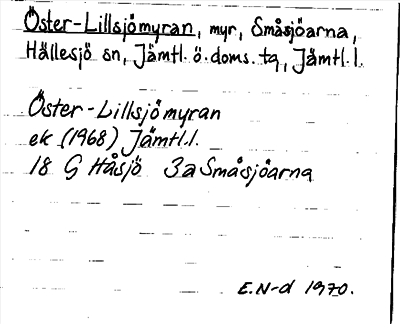 Öster-Lillsjömyran, myr, Småsjöarna,
Hällesjö sn, Jämtl. ö. doms. tg, Jämtl. l.
Öster-Lillsjömyran
ek (1968) Jämtl.l.
18 G Håsjö 3a Småsjöarna
E.N-d 1970.